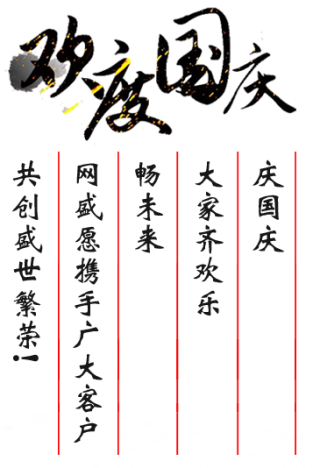 欢度国庆
庆国庆
大家齐欢乐
畅未来
网盛愿携手广大客户
共创盛世繁荣!